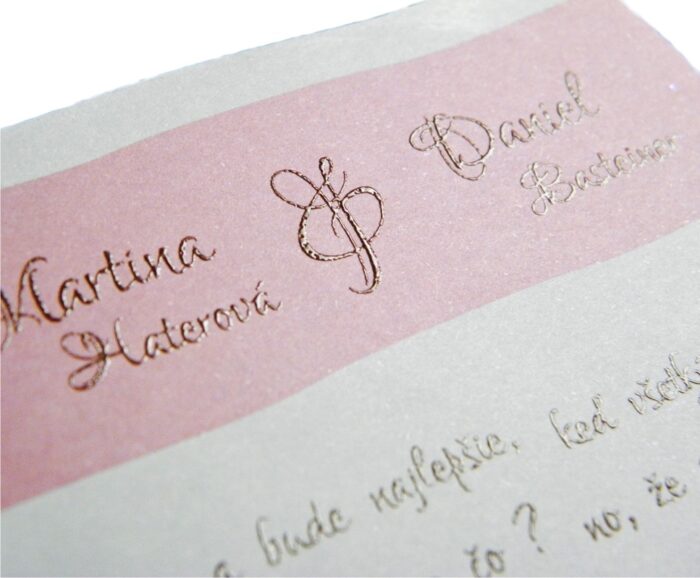 Martina
Haterová
Daniel
Basteiner
a bude najlepšie, keď všetki
čo? no, že